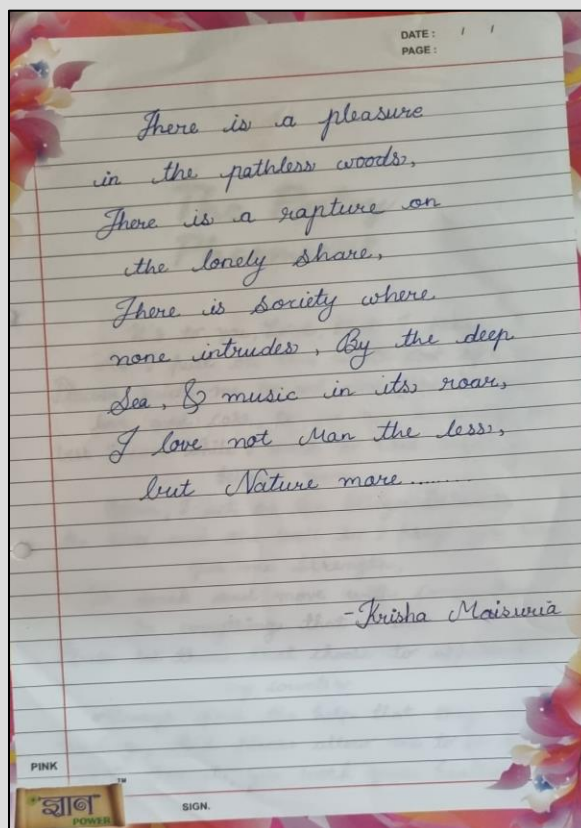 DATE : / /
PAGE :
There is a pleasure
in the pathless woods,
There is a rapture on
the lonely share,
There is society where
none intrudes, By the deep
Sea, & music in its roar,
I love not Man the less,
but Nature more ........
-Krisha Maisuria
PINK
ज्ञान
POWER
TM
SIGN.